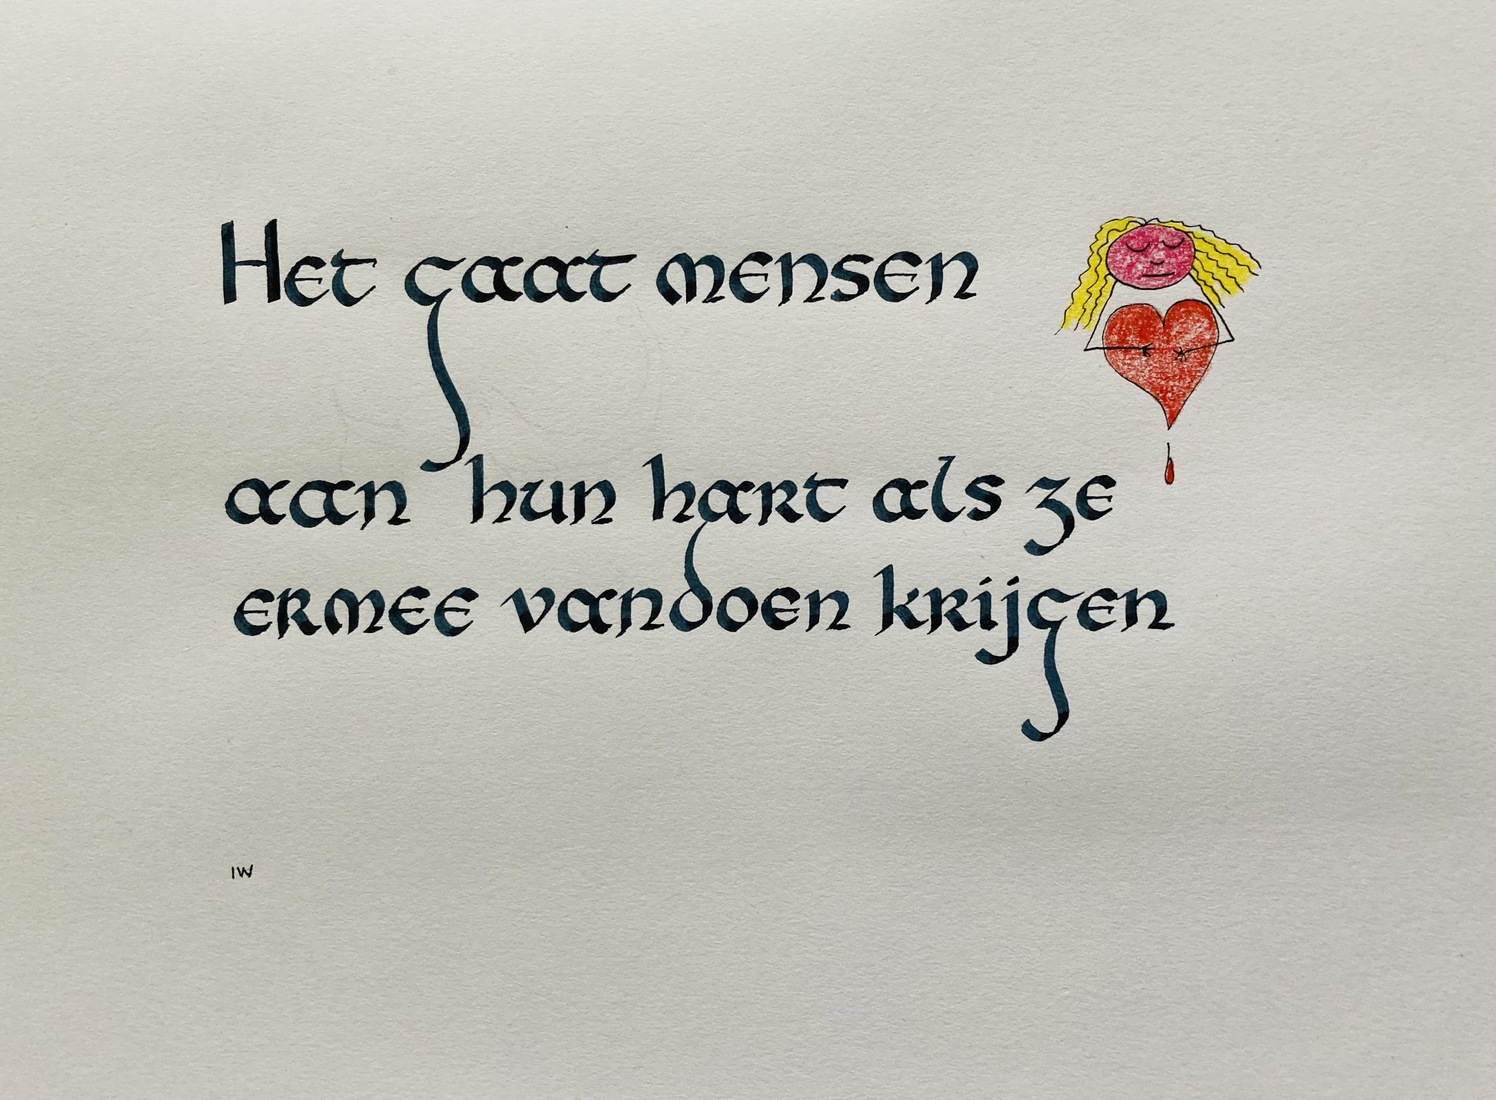 Het gaat mensen
aan hun hart als ze
ermee vandoen krijgen
IW